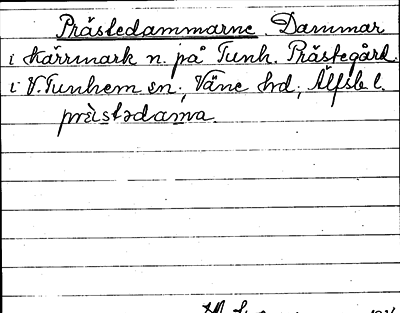 Prästedammarne Dammar
i kärrmark n. på Tunh. Prästegård.
i V. Tunhem sn; Väne hd; Älfsb l.
prɛ̀stədama.